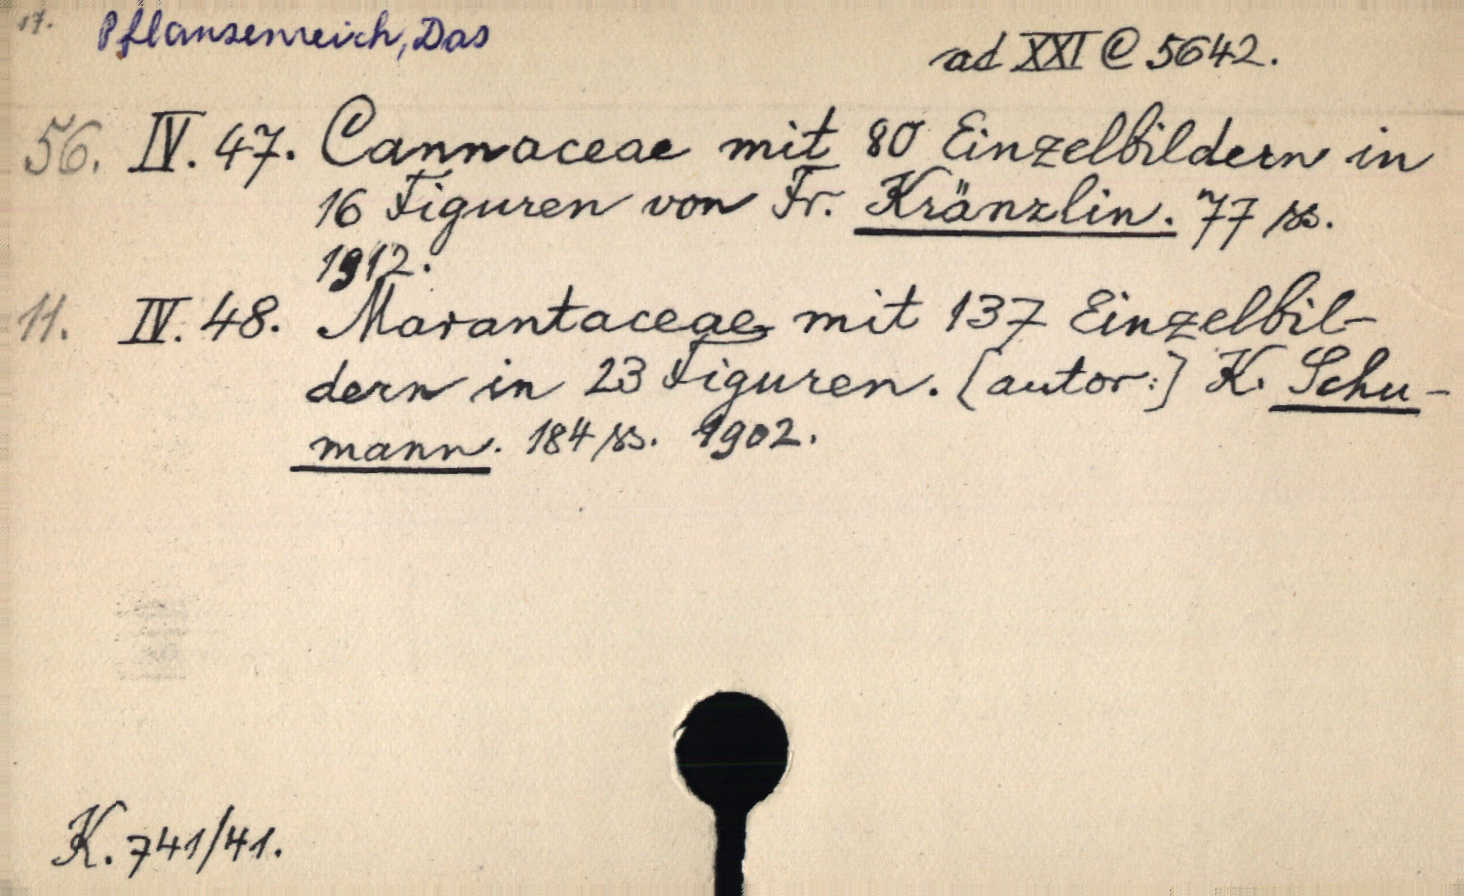 17. Pflanzenreich, Das
ad XXI C 5642.
56. IV. 47. Cannaceae mit 80 Einzelbildern in
16 Figuren von Fr. Kränzlin. 77 ss.
1912.
11. IV. 48. Marantaceae mit 137 Einzelbil-
dern in 23 Figuren. [autor:] K. Schu-
mann. 184 ss. 1902.
K. 741/41.